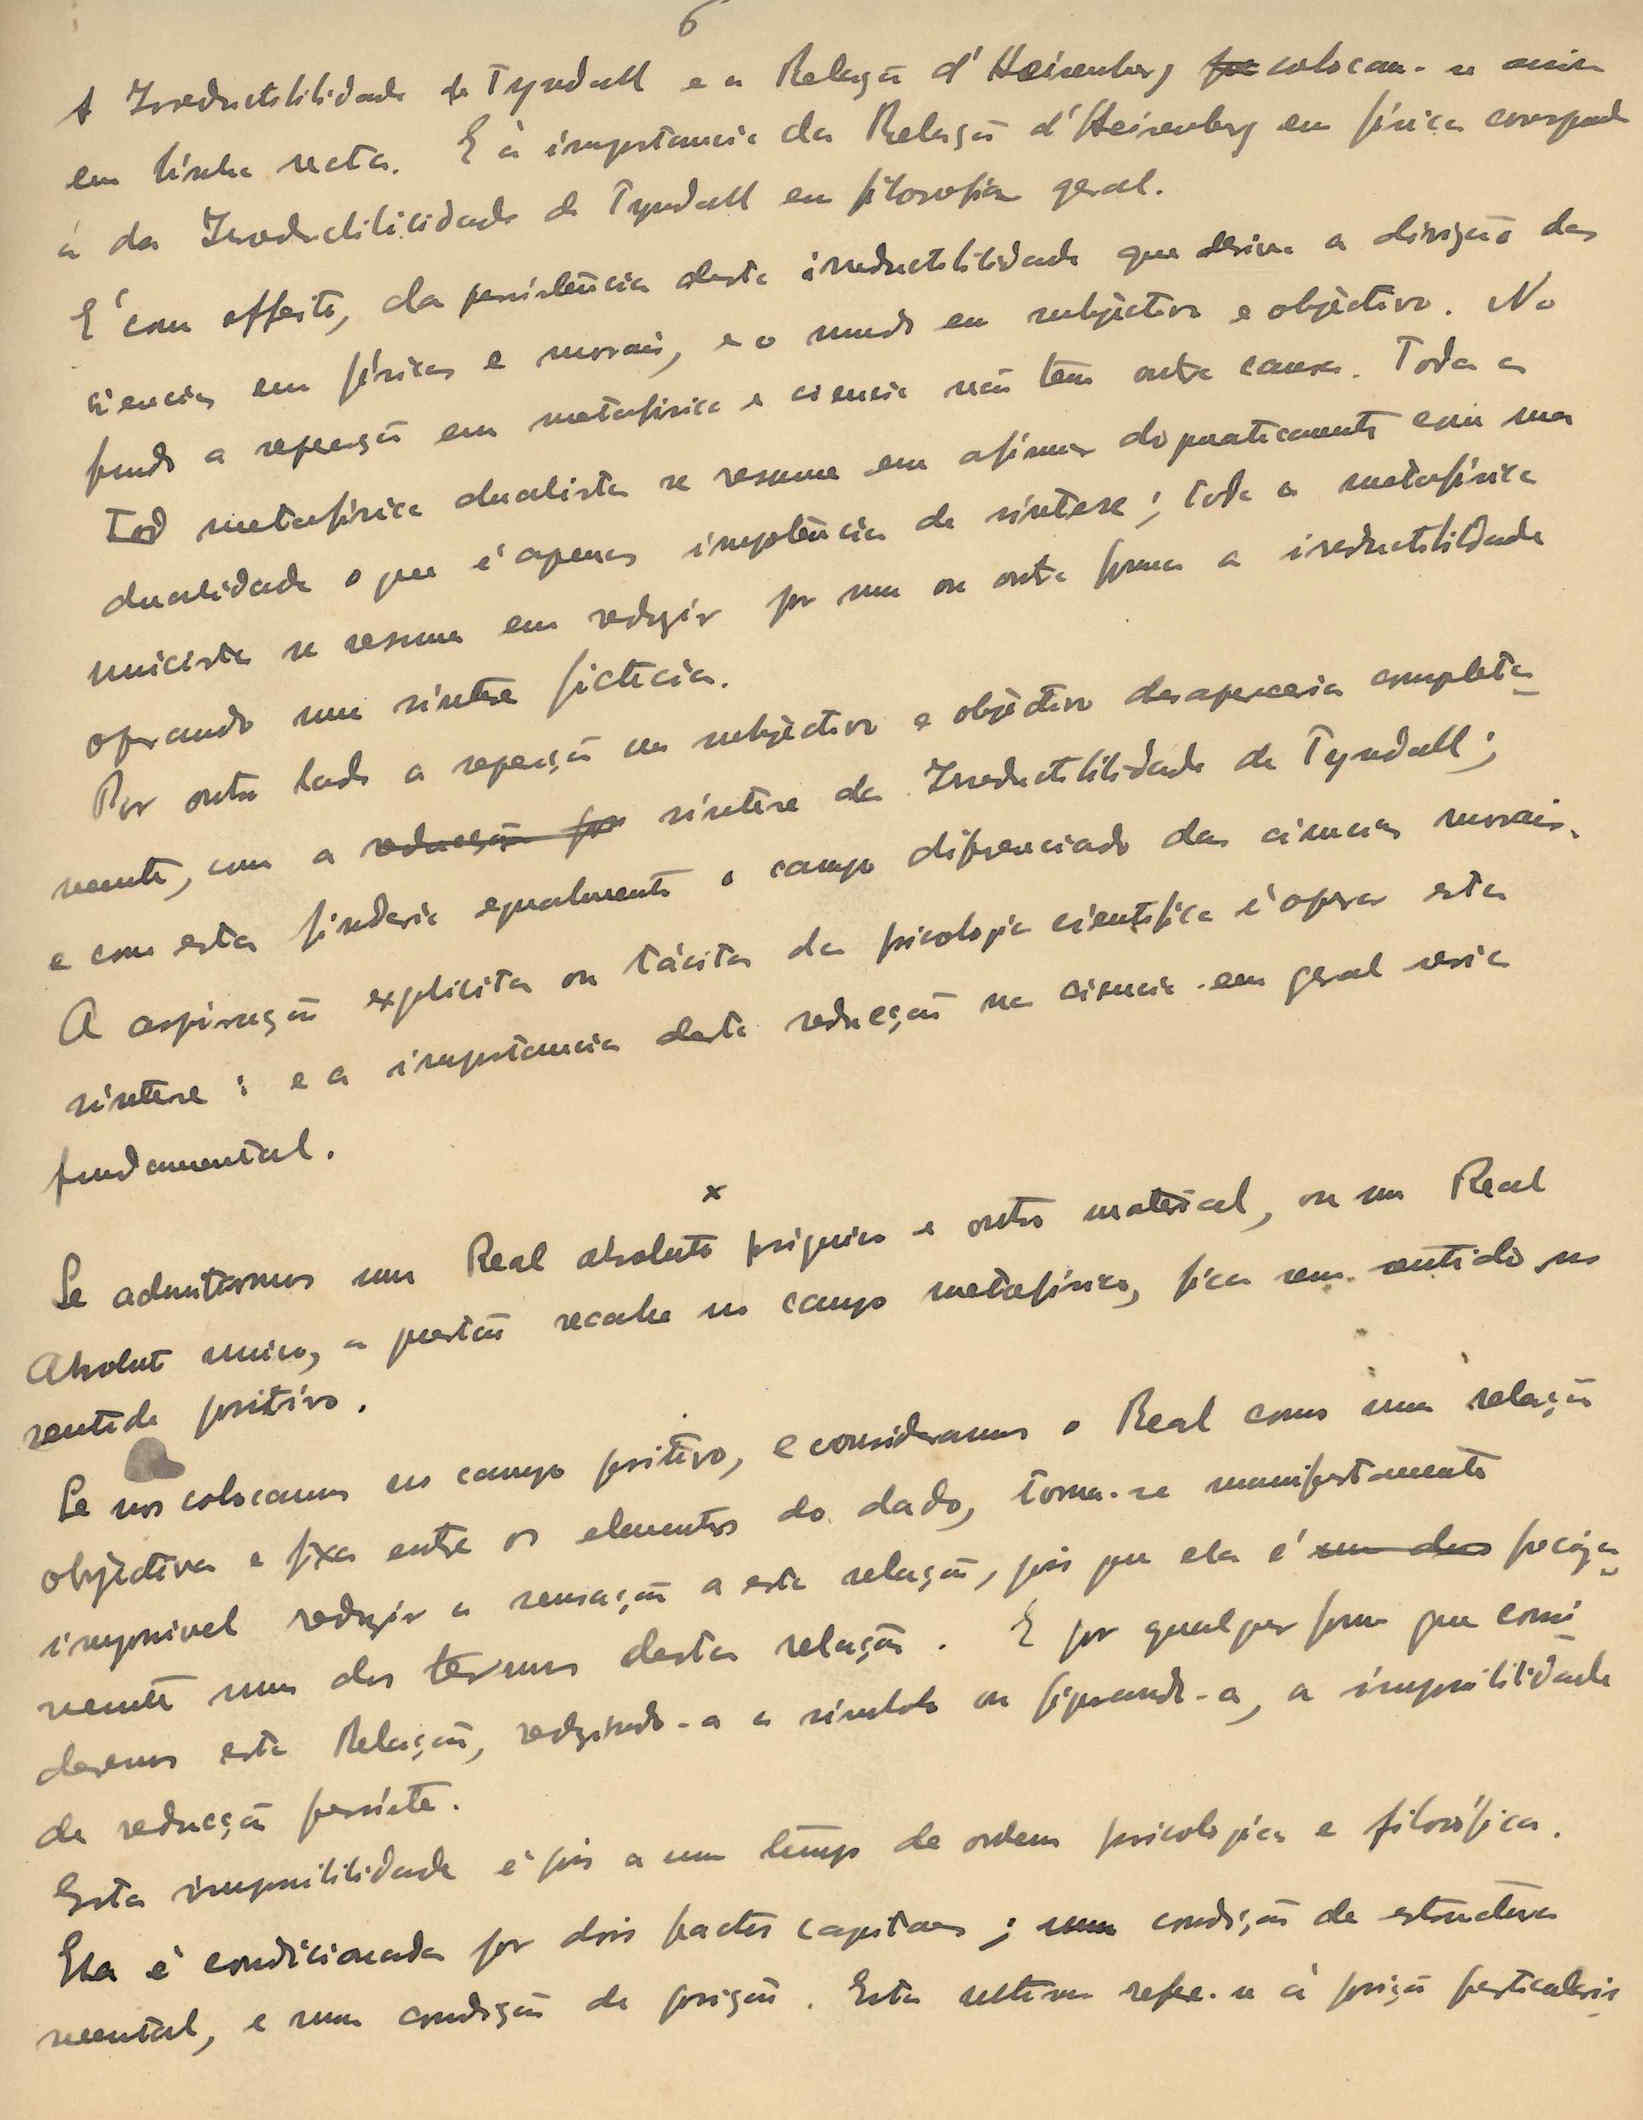 6
A Irreductibilidade de Tyndall e a Relação d'Heisenberg colocam-se assim
em linha recta. E à importancia da Relação d'Heisenberg em física corresponde
a da Irreductibilidade de Tyndall em filosofia geral.
E' com effeito, da persistência desta irreductibilidade que deriva a divisão das
siencias em físicas e morais, e o mundo em subjectivo e objectivo. No
fundo a separação em metafisica e ciencia não tem outra causa. Toda a
metafísica dualista se resume em afirmar dogmaticamente com uma
dualidade o que é apenas impotência de síntese; toda a metafísica
unicista se resume em reduzir por uma ou outra forma a irreductibilidade
operando uma síntese ficticia.
Por outro lado a separação em subjectivo e objectivo desapareceria completa-
mente, com a redução por síntese da Irreductibilidade de Tyndall;
e com esta findaria egualmente o campo diferenciado das ciencias morais.
A aspiração explicita ou tácita da psicologia cientifica é operar esta
síntese: e a importancia desta reducção na ciencia em geral seria
fundamental.
x
Se admitirmos um Real absoluto psiquico e outro material, ou um Real
Absoluto unico, a questão recahe no campo metafísico, fica sem sentido no
sentido positivo.
Se nos colocamos no campo positivo, e consideramos o Real como uma relação
objectiva e fixa entre os elementos do dado, torna-se manifestamente
impossivel reduzir a sensação a esta relação, pois que ela é um dos precisa-
mente um dos termos desta relação. E por qualquer forma que consi-
deremos esta Relação, reduzindo-a a simbolo ou figurando-a, a impossibilidade
de reducção persiste.
Esta impossibilidade é pois a um tempo de ordem psicologica e filosófica.
Ela é condicionada por dois factos capitaes; uma condição de estructura
mental, e uma condição de posição. Esta ultima refere-se à posição particularis-